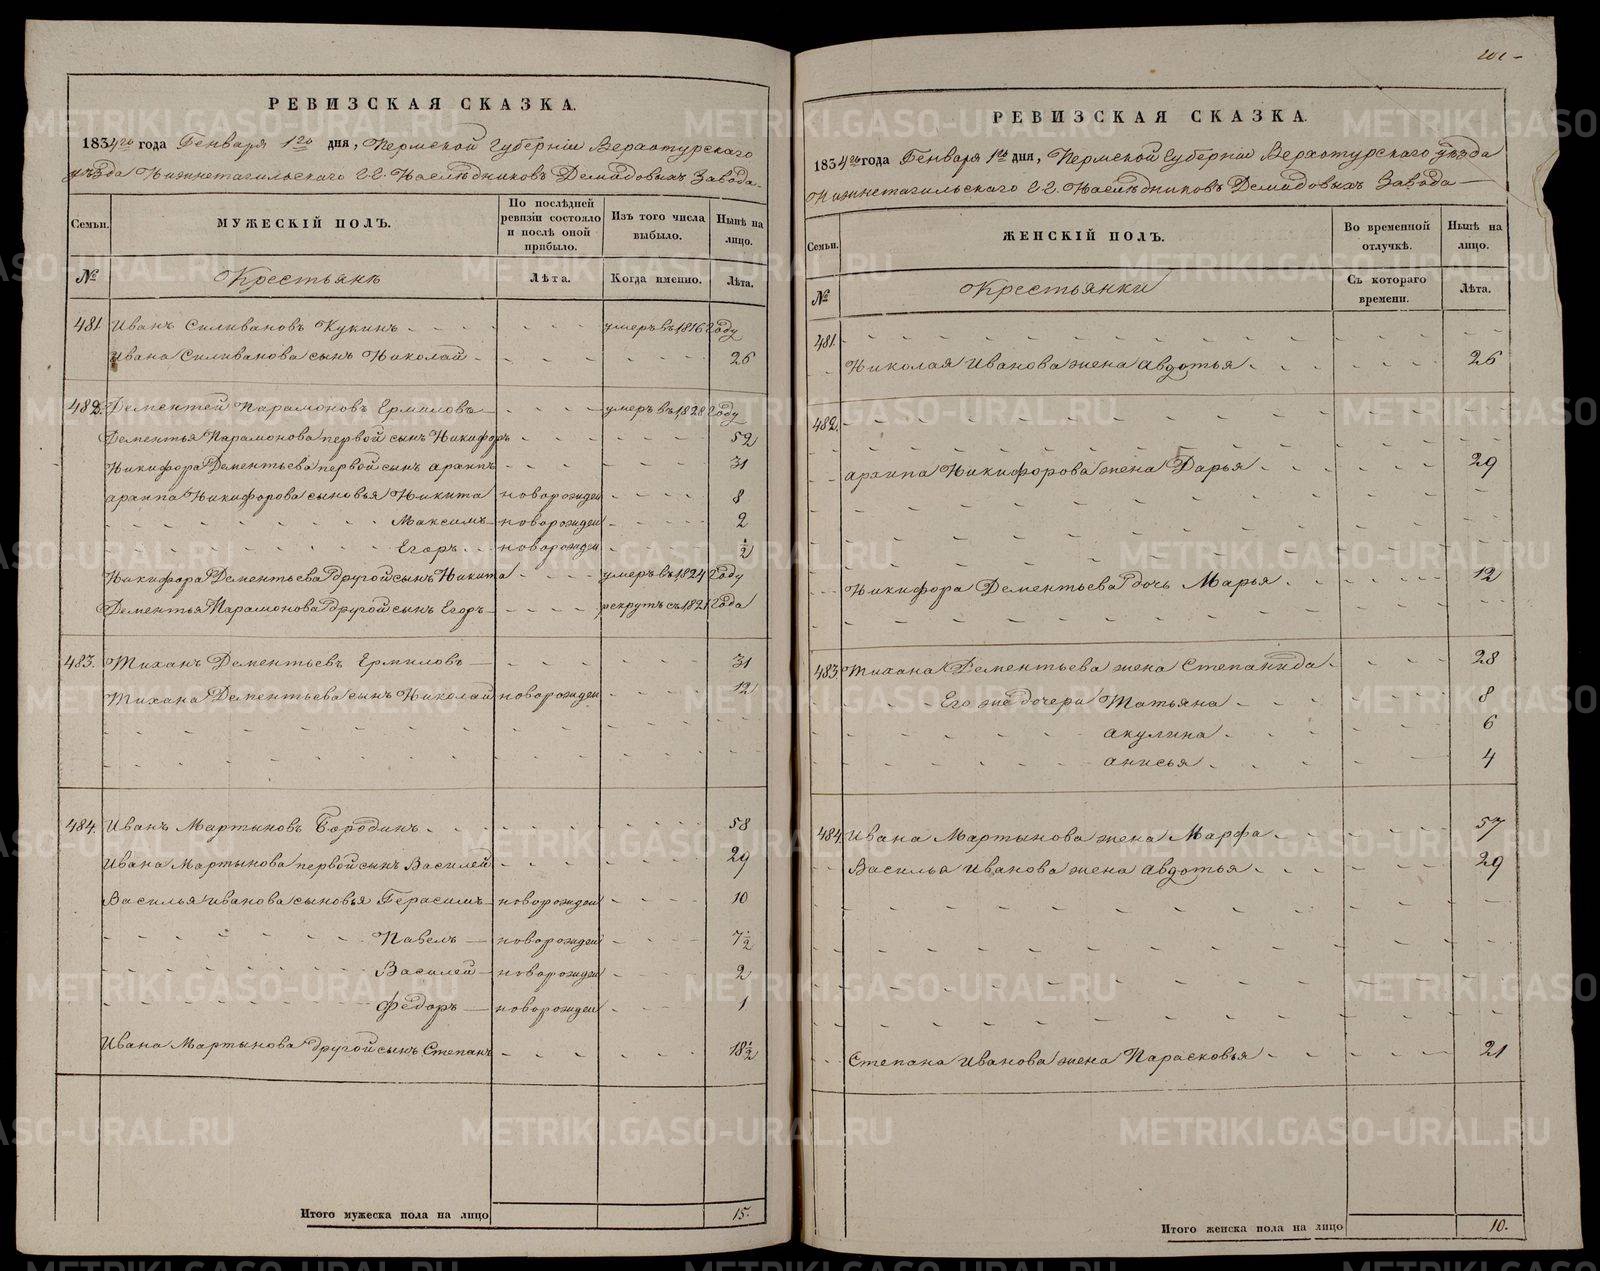 РЕВИЗСКАЯ СКАЗКА.
1834го года Генваря 1го дня, Пермской Губернии Верхотурскаго
уѣзда Нижнетагильскаго Г.Г. Наслѣдниковъ Демидовыхъ Завода.
Семьи.
МУЖЕСКІЙ ПОЛЪ.
По послѣдней ревизіи состояло и послѣ оной прибыло.
Изъ того числа выбыло.
Нынѣ на лицо.
№
Крестьянъ
Лѣта.
Когда именно.
Лѣта.
481 Иванъ Силивановъ Кукинъ умеръ въ 1816 Году
Ивана Силиванова сынъ Николай 26
482. Дементей Парамоновъ Ермиловъ умеръ въ 1828 Году
Дементья Парамонова первой сынъ Никифоръ 52
Никифора Дементьева первой сынъ Архипъ 31
Архипа Никифорова сыновья Никита новорожден 8
Максимъ новорожден 2
Егоръ новорожден ½
Никифора Дементьева другой сынъ Никита умеръ въ 1824 Году
Дементья Парамонова другой сынъ Егоръ рекрутъ съ 1821 Года
483. Тиханъ Дементьевъ Ермиловъ 31
Тихана Дементьева сынъ Николай новорожден 12
484. Иванъ Мартыновъ Бородинъ 58
Ивана Мартынова первой сынъ Василей 29
Василья Иванова сыновья Герасимъ новорожден 10
Павелъ новорожден 7½
Василей новорожден 2
Федоръ новорожден 1
Ивана Мартынова другой сынъ Степанъ 18½
Итого мужеска пола на лицо 15.
201
РЕВИЗСКАЯ СКАЗКА.
1834го года Генваря 1го дня, Пермской Губернии Верхотурскаго уѣзда
Нижнетагильскаго Г.Г. Наслѣдниковъ Демидовыхъ Завода
Семьи.
ЖЕНСКІЙ ПОЛЪ.
Во временной отлучкѣ.
Нынѣ на лицо.
№
Крестьянки
Съ котораго времени.
Лѣта.
481.
Николая Иванова жена Авдотья 26
482.
Архипа Никифорова жена Дарья 29
Никифора Дементьева дочь Марья 12
483. Тихана Дементьева жена Степанида 28
Его же дочери Татьяна 8
Акулина 6
Анисья 4
484. Ивана Мартынова жена Марфа 57
Василья Иванова жена Авдотья 29
Степана Иванова жена Парасковья 21
Итого женска пола на лицо 10.
METRIKI.GASO-URAL.RU